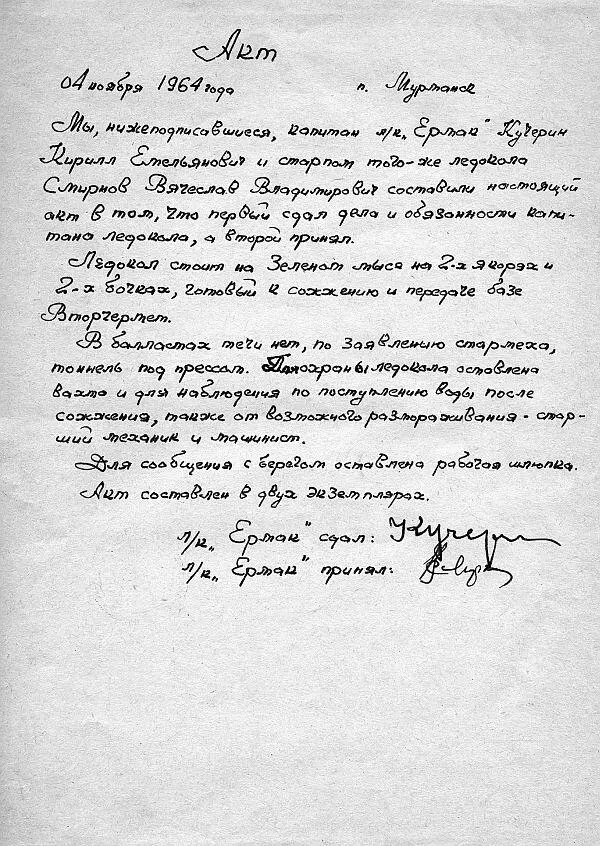 Акт
04 ноября 1964 года п. Мурманск
Мы, нижеподписавшиеся, капитан л/к „Ермак" Кучерин
Кирилл Емельянович и старпом того-же ледокола
Смирнов Вячеслав Владимирович составили настоящий
акт в том, что первый сдал дела и обязанности капи-
тана ледокола, а второй принял.
Ледокол стоит на Зеленом мысе на 2-х якорях и
2-х бочках, готовый к сожжению и передаче базе
Вторчермет.
В балластах течи нет, по заявлению стармеха,
тоннель под прессом. Для охраны ледокола оставлена
вахта и для наблюдения по поступлению воды после
сожжения, также от возможного размораживания - стар-
ший механик и машинист.
Для сообщения с берегом оставлена рабочая шлюпка.
Акт составлен в двух экземплярах.
л/к „Ермак" сдал: Кучерин
л/к „Ермак" принял: